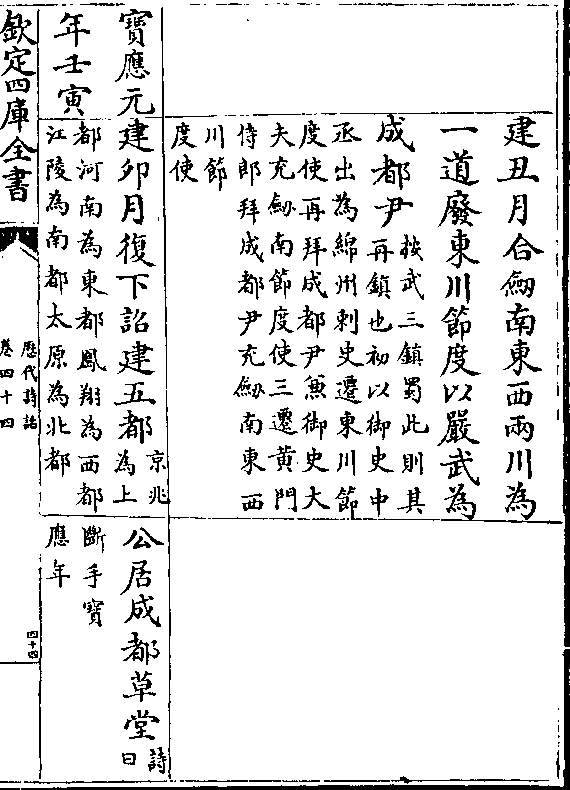 建丑月合劒南東西兩川為
一道廢東川節度以嚴武為
成都尹按武三鎮蜀此則其
再鎮也初以御史中
丞出為綿州刺史遷東川節
度使再拜成都尹兼御史大
夫充劒南節度使三遷黄門
侍郎拜成都尹充劒南東西
川節
度使
寶應元
年壬寅
建卯月復下詔建五都京兆
為上
都河南為東都鳳翔為西都
江陵為南都太原為北都
公居成都草堂詩
曰
斷手寶
應年
欽定四庫全書
歷代詩話
卷四十四
四十四